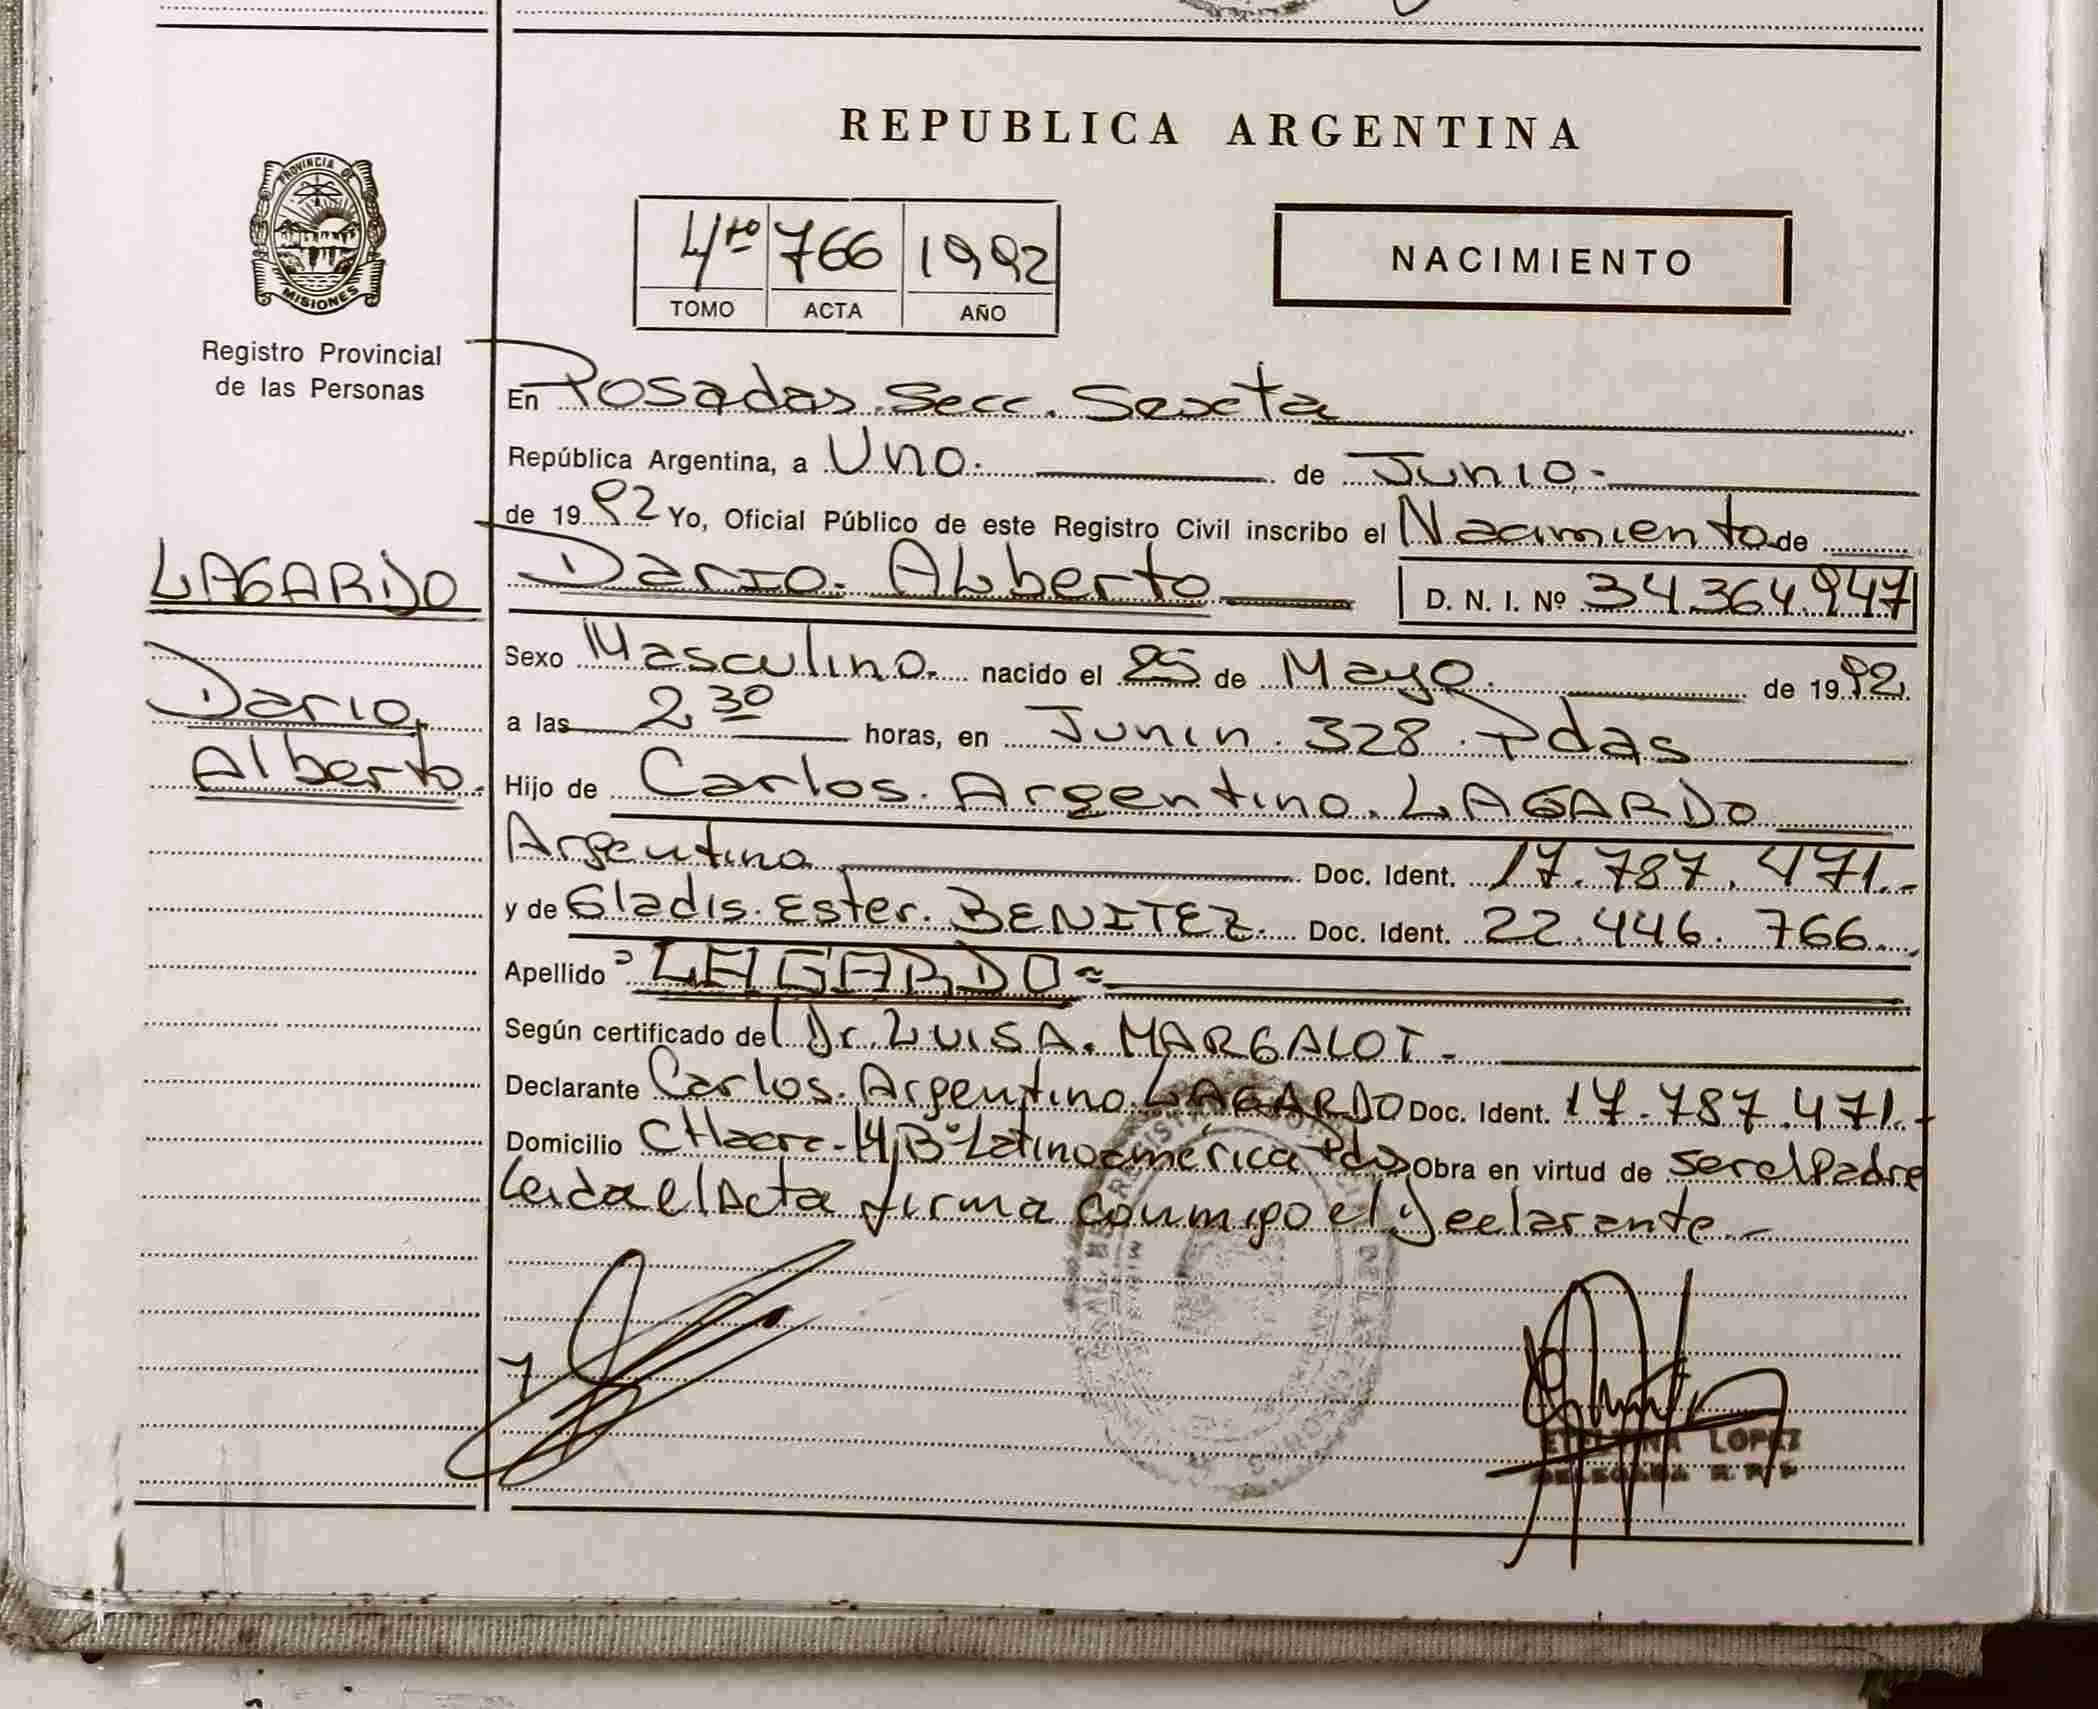 REPUBLICA ARGENTINA
PROVINCIA DE
MISIONES
Registro Provincial
de las Personas
4to 766 1992
TOMO ACTA AÑO
NACIMIENTO
En Posadas. Secc. Sexta
República Argentina, a Uno. de Junio.
de 1992 Yo, Oficial Público de este Registro Civil inscribo el Nacimiento de
LAGARDO
Dario. Alberto D. N. I. Nº 34.364.947
Sexo Masculino. nacido el 25 de Mayo. de 1992.
Dario,
a las 2 30 horas, en Junin. 328. Pdas
Alberto.
Hijo de Carlos. Argentino. LAGARDO
Argentino Doc. Ident. 17.787.471.-
y de Gladis. Ester. BENITEZ. Doc. Ident. 22.446.766.
Apellido = LAGARDO =
Según certificado del Dr. LUIS A. MARGALOT -
Declarante Carlos. Argentino. LAGARDO Doc. Ident. 17.787.471.-
Domicilio CHacra-14 Bº Latinoamérica Pdas Obra en virtud de ser el Padre
Leida el Acta firma conmigo el Declarante.-
LOPEZ
DELEGADA R.R.P